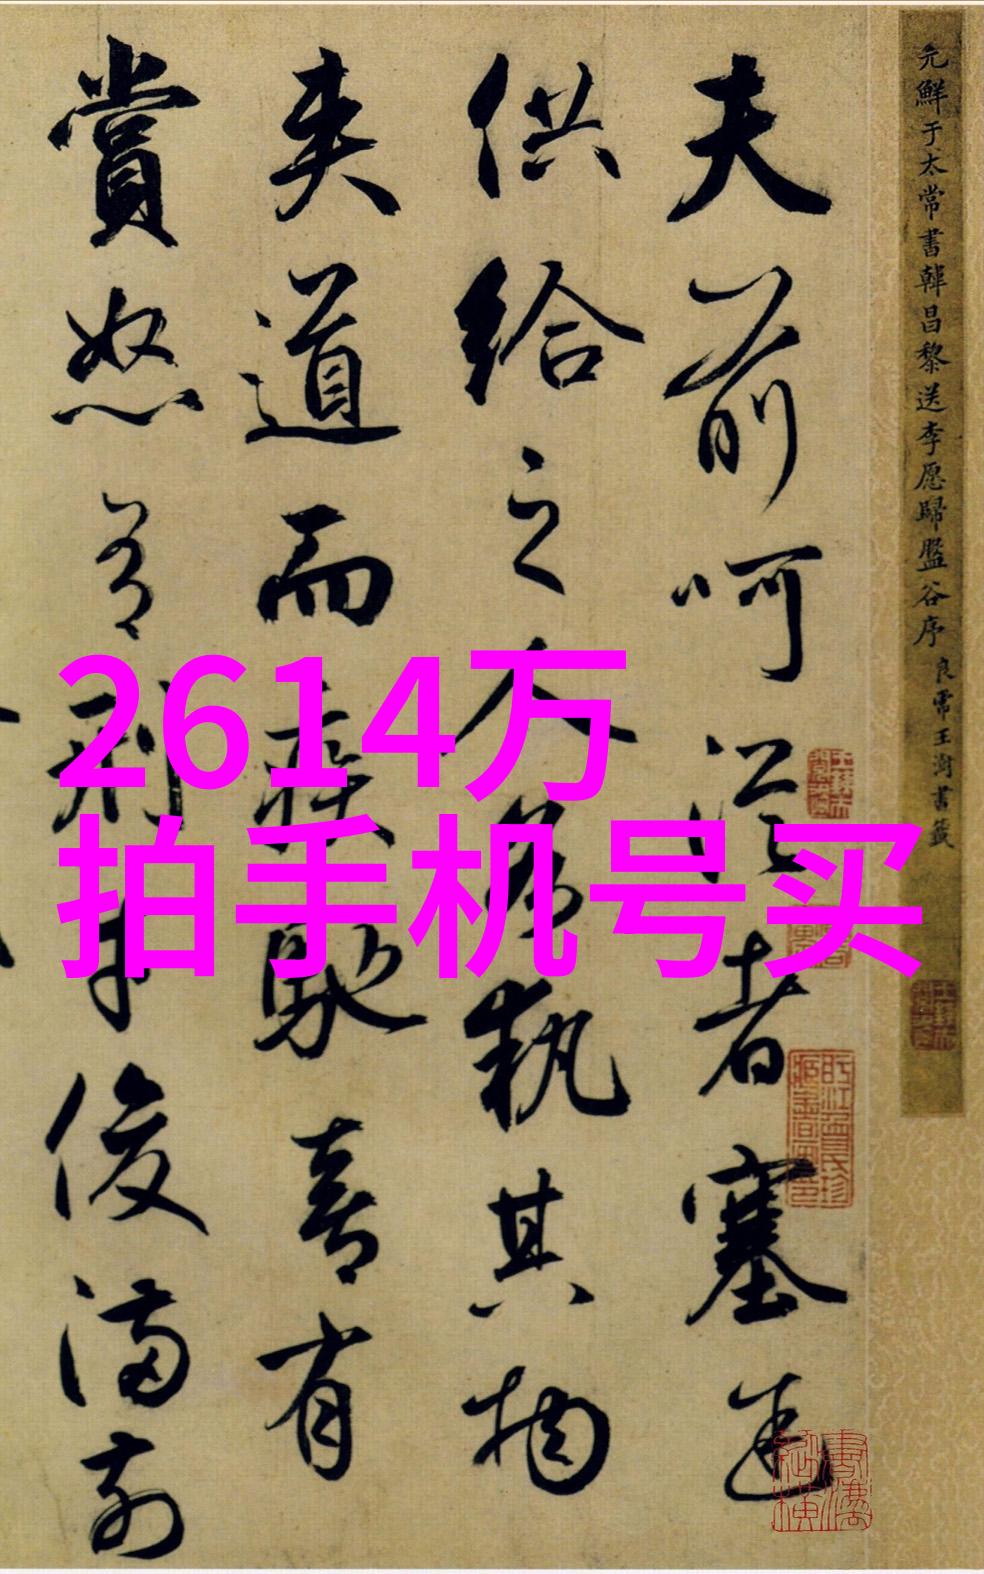 元鮮于太常書韓昌黎送李愿歸盤谷序 良常王澍書籤
夫前呵從者塞途
供給之人各執其物
夾道而疾馳喜有
賞怒有刑才俊滿前
2614万
拍手机号买